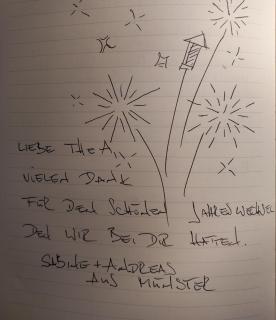 LIEBE THEA,
VIELEN DANK
FÜR DEN SCHÖNEN JAHRESWECHSEL
DEN WIR BEI DIR HATTEN.
SABINE + ANDREAS
AUS MÜNSTER